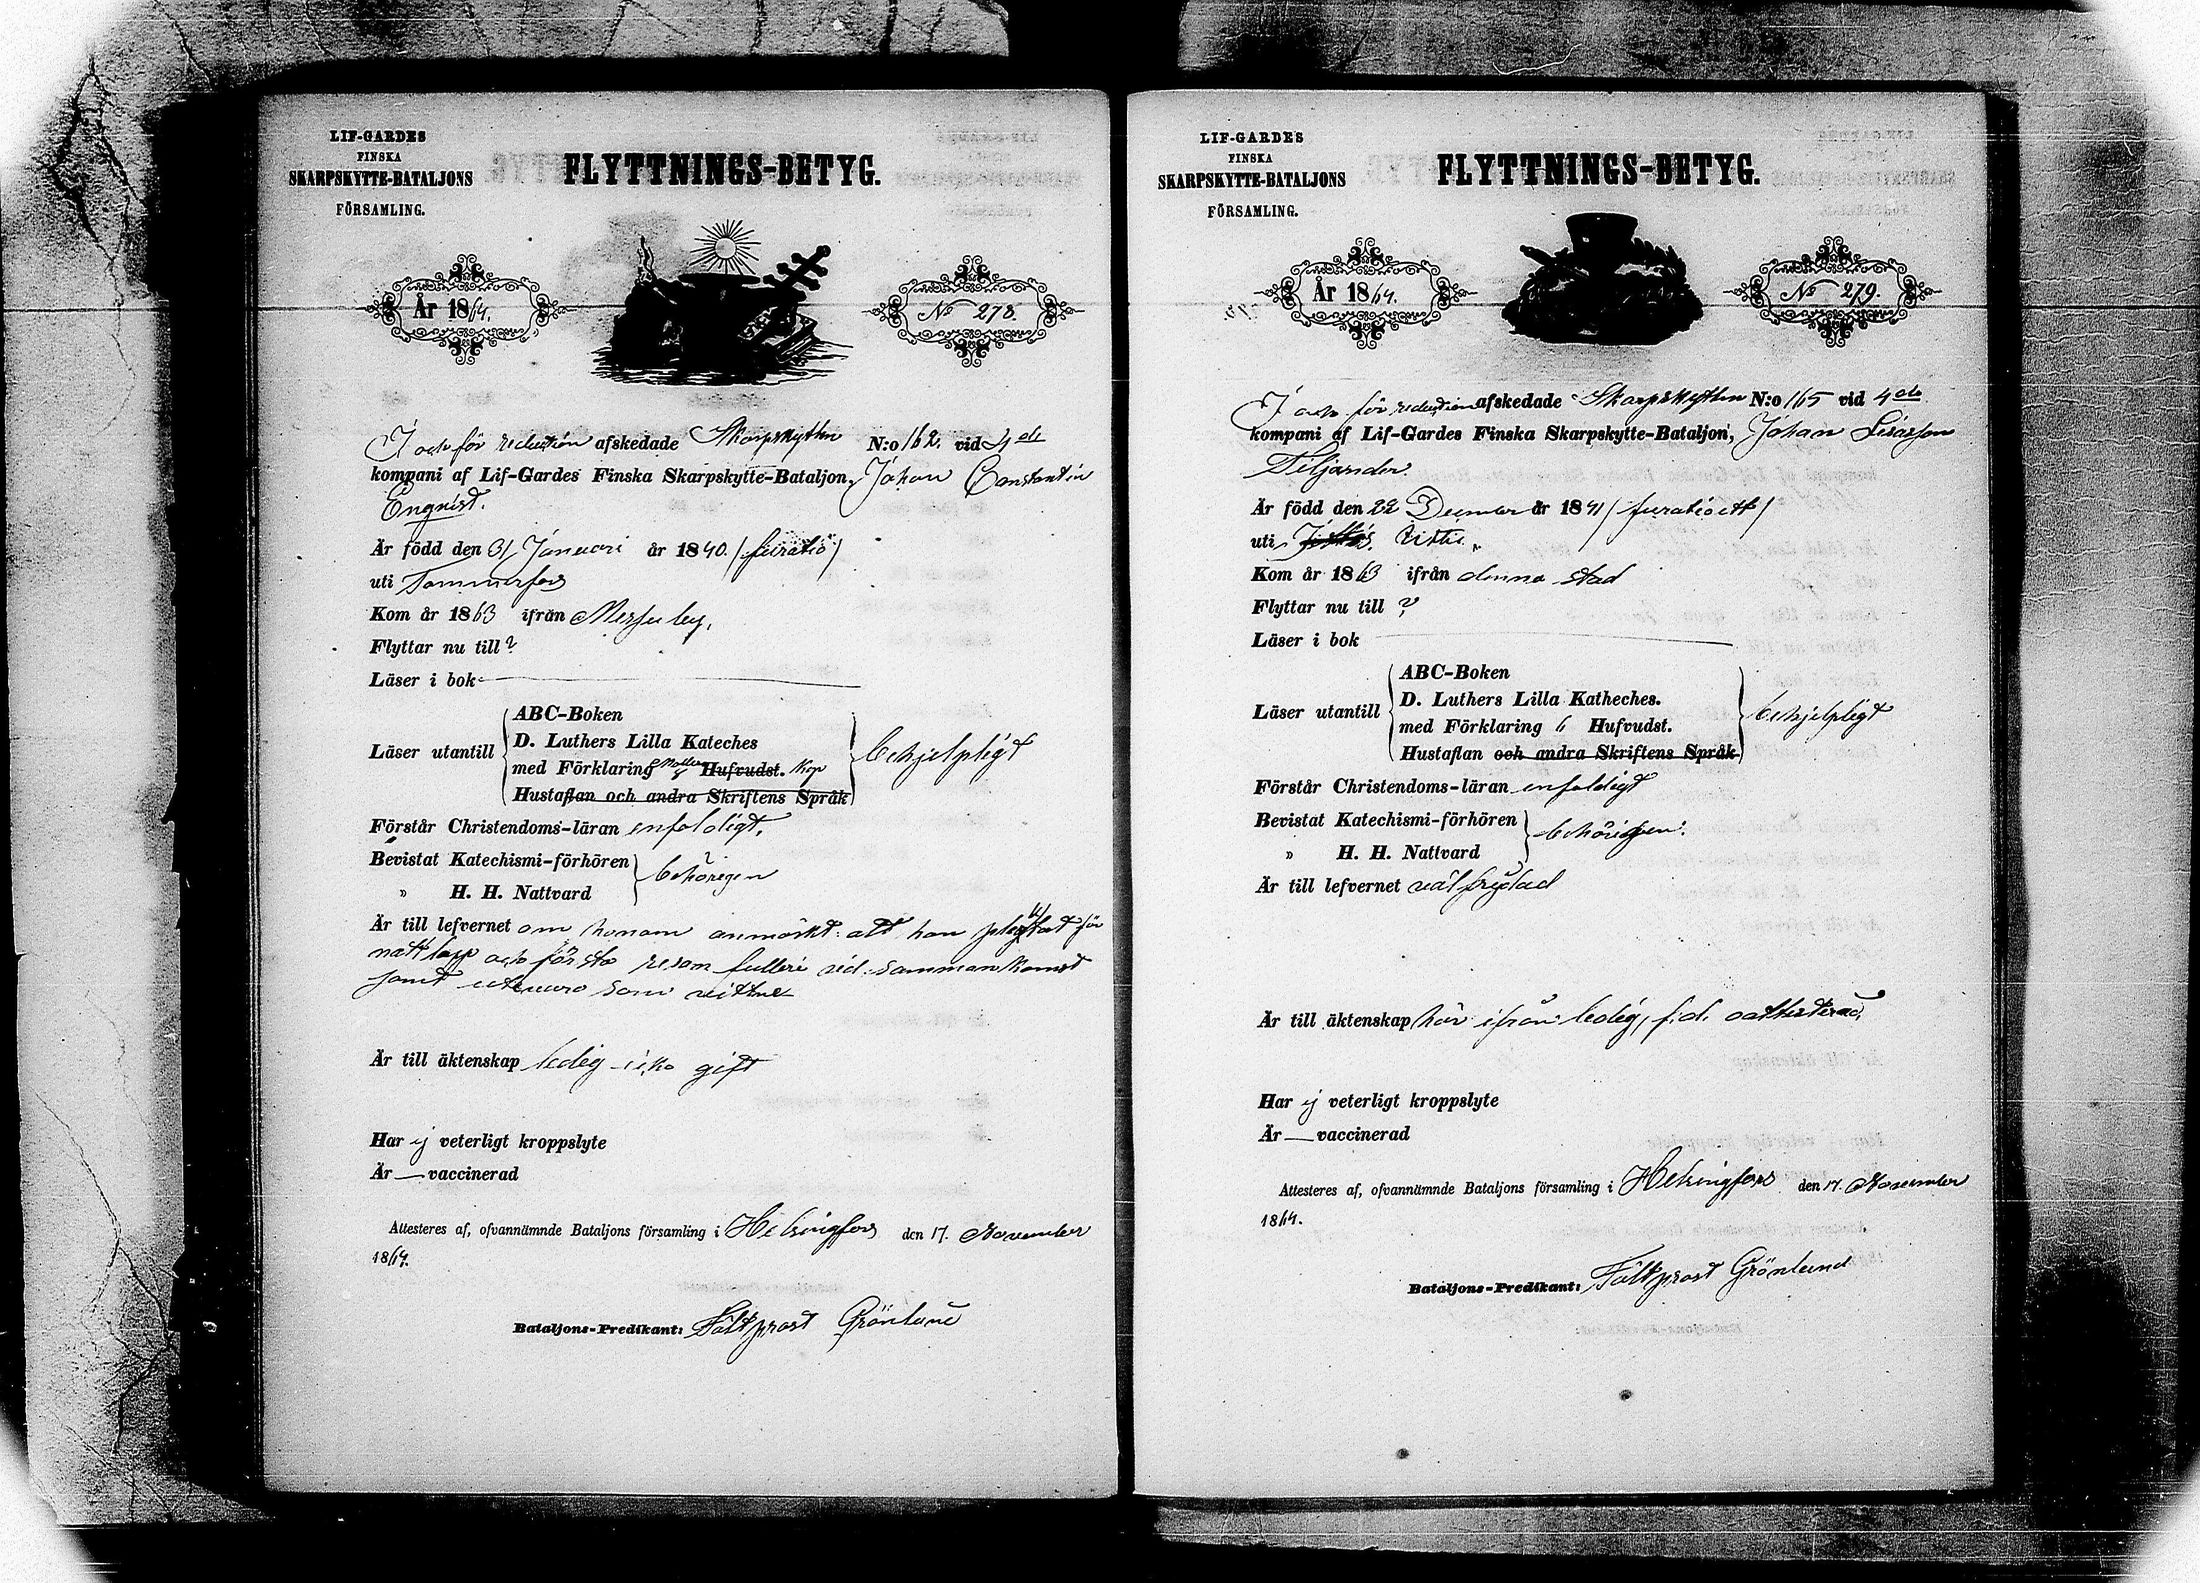 LIF-GARDES
FINSKA
SKARPSKYTTE-BATALJONS
FÖRSAMLING.
FLYTTNINGS-BETYG.
År 1864.
No 278.
I och för reduction afskedade Skarpskytten N:o 162. vid 4de
kompani af Lif-Gardes Finska Skarpskytte-Bataljon, Johan Constantin
Enqvist.
Är född den 31 Januari år 1840. / furatio /
uti Tammerfors
Kom år 1863 ifrån Messuby,
Flyttar nu till ?
Läser i bok
Läser utantill
ABC-Boken
D. Luthers Lilla Kateches
med Förklaring Hufvudst.
Hustaflan och andra Skriftens Språk
behjelpligt
Förstår Christendoms-läran enfaldigt.
Bevistat Katechismi-förhören
" H. H. Nattvard
behörigen
Är till lefvernet om honom anmärkt: att han pligtat för
nattlopp och första resan fylleri vid sammankomst
samt som vittne
Är till äktenskap ledig icke gift
Har ej veterligt kroppslyte
Är — vaccinerad
Attesteres af, ofvannämnde Bataljons församling i Helsingfors den 17. November
1864.
Bataljons-Predikant: Fältprost Grönlund
LIF-GARDES
FINSKA
SKARPSKYTTE-BATALJONS
FÖRSAMLING.
FLYTTNINGS-BETYG.
År 1864.
No 279.
I och för reduction afskedade Skarpskytten N:o 165 vid 4de
kompani af Lif-Gardes Finska Skarpskytte-Bataljon, Johan
Siljander.
Är född den 22 December år 1841 / furatioett /
uti Vittis.
Kom år 1863 ifrån denna stad
Flyttar nu till ?
Läser i bok
Läser utantill
ABC-Boken
D. Luthers Lilla Katheches.
med Förklaring 6 Hufvudst.
Hustaflan och andra Skriftens Språk
behjelpligt
Förstår Christendoms-läran enfaldigt
Bevistat Katechismi-förhören
" H. H. Nattvard
behörigen.
Är till lefvernet väl frejdad
Är till äktenskap här ifrån ledig, f.d. oattesterad.
Har ej veterligt kroppslyte
Är — vaccinerad
Attesteres af, ofvannämnde Bataljons församling i Helsingfors den 17. November
1864.
Bataljons-Predikant: Fältprost Grönlund